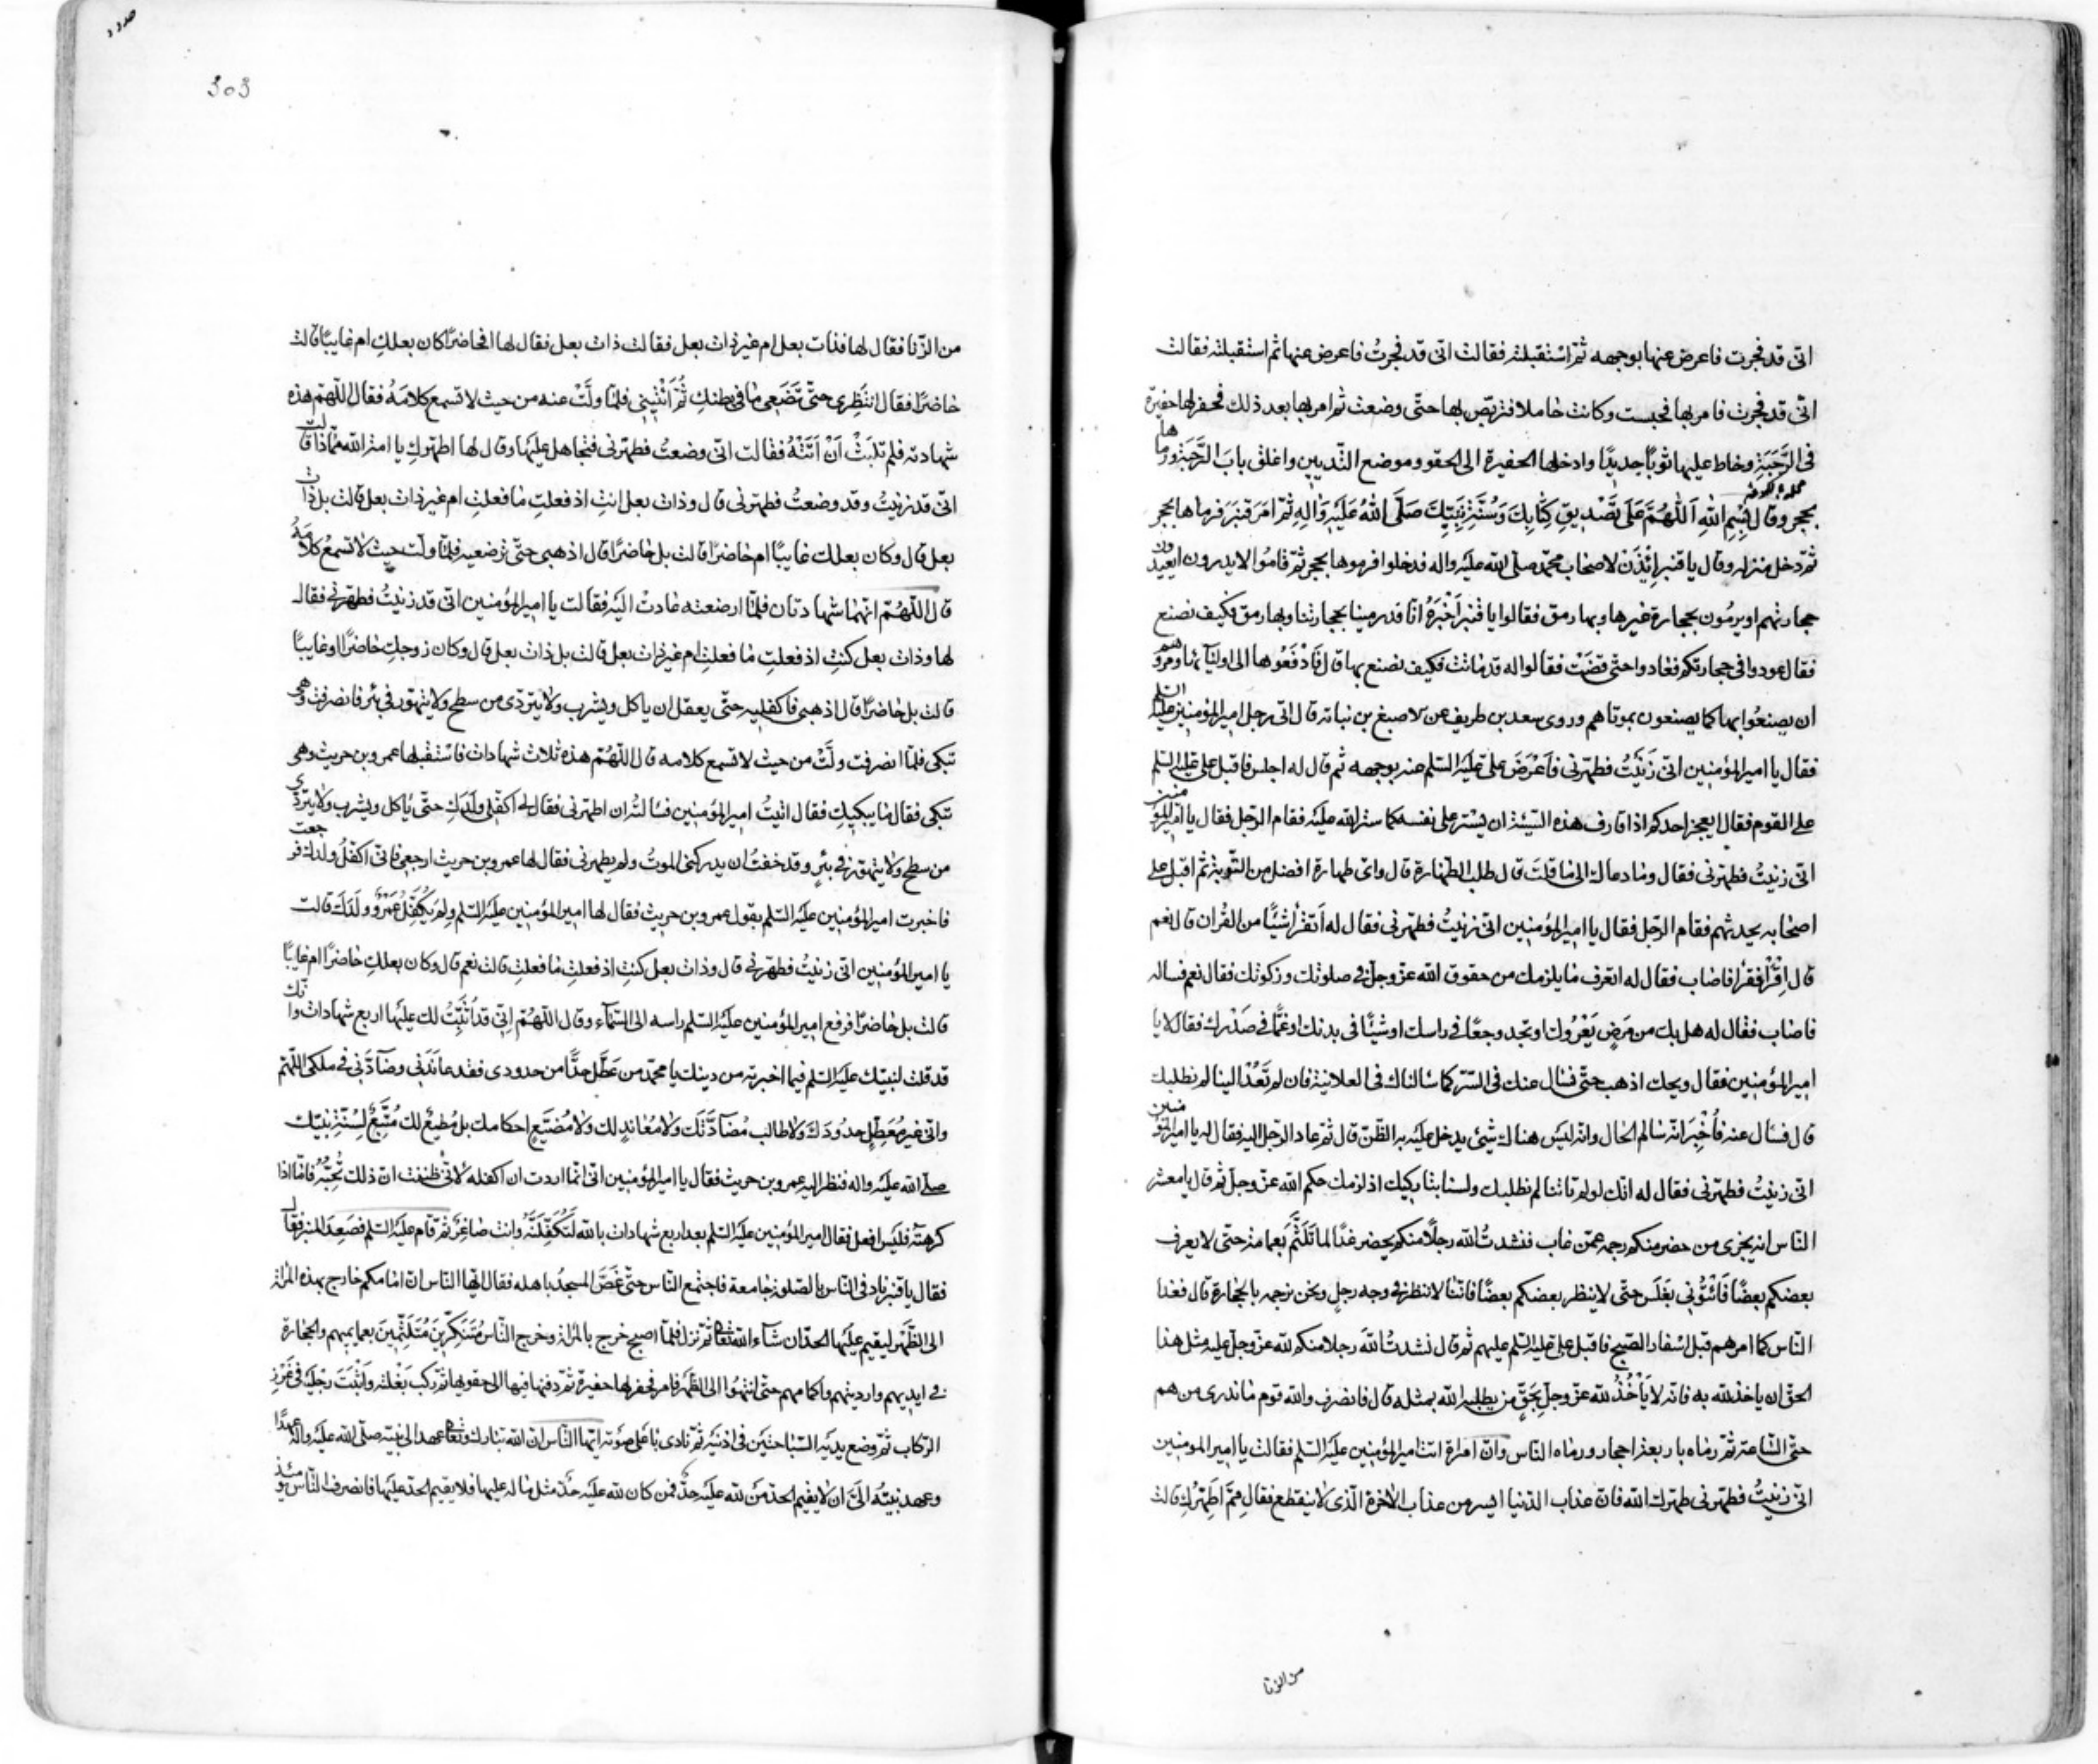 انى قد فجرت فاعرض عنها بوجهه ثمّ اسْتقبلته فقالت انى قد فجرتُ فاعرض عنها ثم استقبلته فقالت
انّى قد فجرت فامر بها فحبست وكانت حاملا فتربّص بها حتّى وضعت ثم امر بها بعد ذلك فحفر لها حفيرة
فى الرَّحَبَةِ وخاط عليها ثوبًا جديدًا وادخلها الحفيرة الى الحقو وموضع الثّديين واغلق بابَ الرَّحَبَةِ ورماها
بحجر وقال بِسْمِ اللهِ اَللّٰهُمَّ عَلٰى تَصْديقِ كِتٰابِكَ وَسُنَّةِ نَبِيِّكَ صَلَّى اللهُ عَلَيْهِ وَاٰلِهِ ثمّ امَرَ قنبَرَ فرماها بحجر
ثمّ دخل منزله وقال يا قنبر اِئْذَنْ لاصحاب محمّد صلّى الله عليه واله فدخلوا فرموها بحجر ثمّ قامُوا لا يدرون ايعيدون
حجارتهم او يرمُون بحجارة غيرها وبها رمق فقالوا يا قنبر اَخْبِرْهُ انّا قد رمينا بحجارتنا وبها رمق فكيف نصنع
فقال عودوا فى حجارتكم فعادوا حتّى قضَتْ فقالوا له قد ماتت فكيف نصنع بها قال فَادْفَعُوها الى اوليآئها ومروهم
ان يصنعُوا بها كما يصنعون بموتاهم وروى سعد بن طريف عن الاصبغ بن نباته قال اتى رجل امير المؤمنين عليه السّلم
فقال يا امير المؤمنين انى زَنَيْتُ فطهّرنى فَاَعْرَضَ على عَلَيْه السّلم عنه بوجهه ثم قال له اجلس فاقبل على عليه السّلم
على القوم فقال ايعجز احدكم اذا قارف هذه السّيّئة ان يَسْتر على نفسه كما ستر الله عليه فقام الرّجل فقال يا امير المؤمنين
انى زنيتُ فطهّرنى فقال وما دعاك الى ما قلتَ قال طلب الطّهارة قال واىّ طهارة افضل من التّوبة ثم اقبل على
اصحابه يحدّثهم فقام الرّجل فقال يا امير المؤمنين انى زنيتُ فطهّرنى فقال له اَتقرأ شَيْئًا من القران قال نعم
قال اِقْرَأْ فقرأ فاصاب فقال له اتعرف ما يلزمك من حقوق الله عزّ وجلّ فى صلوتك وزكوتك فقال نعم فساله
فاصاب فقال له هل بك من مَرَضٍ يَعْرُوك او تجد وجعًا فى راسك او شَيْئًا فى بدنك او غَمًّا فى صَدْرك فقال لا يا
امير المؤمنين فقال ويحك اذهب حتّى نسْال عنك فى السّرّ كما سالناك فى العلانية فان لم تَعُدْ الينا لم نطلبك
قال فسال عنه فَاُخْبِرَ انّه سالم الحال وانّه ليس هناك شىْئ يدخل عليه به الظّنّ قال ثمّ عاد الرّجل اليه فقال له يا امير المؤمنين
انى زنيتُ فطهّرنى فقال له انّك لو لم تاتنا لم نطلبك ولسنا بتاركيك اذ لزمك حكم الله عزّ وجلّ ثمّ قال يا معشر
النّاس انه يجزى من حضر منكم رجمه عمّن غاب فنشدتُ الله رجلًا منكم يحضر غدًا لما تَلَثَّمَ بعمامته حتى لا يعرف
بعضكم بعضًا فَاْتُونى بِغَلَسٍ حتّى لا ينظر بعضكم بعضًا فانّنا لا ننظر فى وجه رجلٍ ونحن نرجمه بالحجارة قال فغدا
النّاس كما امرهم قبل اسْفار الصّبح فاقبل على عليه السّلم عليهم ثمّ قال نشدتُ الله رجلا منكم لله عزّ وجلّ عليه مثل هذا
الحقّ ان ياخذ لله به فانّه لا يَأْخُذُ لله عزّ وجلّ بِحَقٍّ من يطلبه الله بمثله قال فانصرف والله قوم ما ندرى من هم
حتّى السّاعة ثمّ رماه باربعة احجار ورماه النّاس وانّ امراة اتت امير المؤمنين عليه السّلم فقالت يا امير المومنين
انّى زنيتُ فطهّرنى طهّرك الله فانّ عذاب الدّنيا ايسر من عذاب الاخرة الّذى لا ينقطع فقال مِمَّ اطَهِّرُكِ قالت
من الزنا
303
من الزّنا فقال لها فذات بعل ام غير ذات بعل فقالت ذات بعل فقال لها افحاضرًا كان بعلكِ ام غايبًا قالت
حاضرًا فقال انتَظِرى حتّى تَضَعِى ما فى بطنكِ ثُمّ اْئتينِى فلمّا ولّت عنه من حيث لا تسمع كلامَهُ فقال اللّهمّ هذه
شهادته فلم تلبَثْ اَنْ اَتَتْهُ فقالت انّى وضعتُ فطهّرنى فتجاهل عليها وقال لها اطهّركِ يا امة الله ممّا ذا قالت
انّى قد زنيْتُ وقد وضعتُ فطهّرنى قال وذات بعل انتِ اذ فعلتِ ما فعلتِ ام غير ذات بعل قالت بل ذات
بعل قال وكان بعلك غايبًا ام حاضرًا قالت بل حاضرًا قال اذهبى حتّى ترضعيه فلمّا ولّت حيث لا تسمعُ كلامَهُ
قال اللّهُمّ انّهما شهادتان فلمّا ارضعته عادتْ اليه فقالت يا امير المؤمنين انّى قد زنيْتُ فطهّرنى فقال
لها وذات بعل كنتِ اذ فعلتِ ما فعلتِ ام غير ذات بعل قالت بل ذات بعل قال وكان زوجكِ حاضرًا او غايبًا
قالت بل حاضرًا قال اذهبى فاكفليه حتّى يعقل ان ياكل ويشرب ولا يتردّى من سطح ولا يتهوّر فى بئر فانصرفت وهى
تبكى فلمّا انصرفت ولّتْ من حيث لا تسمع كلامه قال اللّهُمّ هذه ثلاث شهادات فاسْتقبلها عمرو بن حريث وهى
تبكى فقال ما يبكيكِ فقال اتيتُ امير المؤمنين فسالتُه ان اطهّرنى فقال لى اكفلى ولَدَكِ حتّى ياكل ويشرب ولا يتردّى
من سطح ولا يتهوّر فى بئرٍ وقد خفتُ ان يدركنى الموتُ ولم يطهرنى فقال لها عمرو بن حريث ارجعى فانى اكفُلُ ولدك فرجعت
فاخبرت امير المؤمنين عليه السّلم بقول عمرو بن حريث فقال لها امير المؤمنين عليه السّلم ولِمَ يَكْفُلُ عَمْرٌو ولَدَكِ قالت
يا امير المؤمنين انّى زنيتُ فطهّرنى قال وذات بعل كنتِ اذ فعلتِ ما فعلتِ قالت نعم قال وكان بعلكِ حاضرًا ام غايبًا
قالت بل حاضرًا فرفع امير المؤمنين عليه السّلم راسه الى السّمآء وقال اللّهُمّ اِنّى قد اَثبَتُّ لك عليها اربع شهادات وانّك
قد قلت لنبيّك عليه السّلم فيما اخبرته من دينك يا محمّد من عَطّلَ حدًّا من حدودى فقد عاندَنى وضآدّنى فى ملكى اللّهمّ
وانّى غير مُعَطِّلٍ حدُودَكَ ولا طالب مُضآدّتك ولا مُعاندٍ لك ولا مُضيّعٍ احكامك بل مُطيعٌ لك مُتَّبِعٌ لِسُنّةِ نبيّك
صلّى الله عليه واله فنظر اليه عمرو بن حريث فقال يا امير المؤمنين انّى انّما اردت ان اكفله لانّى ظننت انّ ذلك تُحِبّهُ فامّا اذا
كرهتَهُ فليس افعل فقال امير المؤمنين عليه السّلم بعد اربع شهادات بالله لَتَكْفِلَنَّهُ وانت صاغِرٌ ثمّ قام عليه السّلم فصَعِدَ المنبر فقال
فقال يا قنبر نادِ فى النّاس بالصلوة جامعة فاجتمع النّاس حتّى غَصّ المسجدُ باهله فقال ايّها النّاس انّ امامكم خارج بهذه المراة
الى الظَّهْرِ ليقيم عليها الحدّ ان شآء الله تعالى ثمّ نزل فلمّا اصبح خرج بالمراة وخرج النّاس مُتَنَكِّرِينَ مُتَلَثِّمِينَ بعمايمهم والحجارة
فى ايديهم وارديتهم واكمامهم حتّى انتهوا الى الظّهر فامر فحفر لها حفيرة ثمّ دفنها فيها الى حقويها ثمّ ركب بَغْلته واَثْبَتَ رجليه فى غَرْزِ
الرّكاب ثمّ وضع يديه السّباحتين فى اذنيه ثمّ نادى باَعلى صَوْته ايّها النّاس انّ الله تبارك وتعالى عهد الى نبيّه صلّى الله عليه واله عهدًا
وعهد نبيّهُ الىّ ان لا يقيم الحدّ مَن لله عليه حدٌّ فمن كان لله عليه حَدّ مثل ما له عليها فلا يقيم الحدّ عليها فانصرف النّاس يومئذ